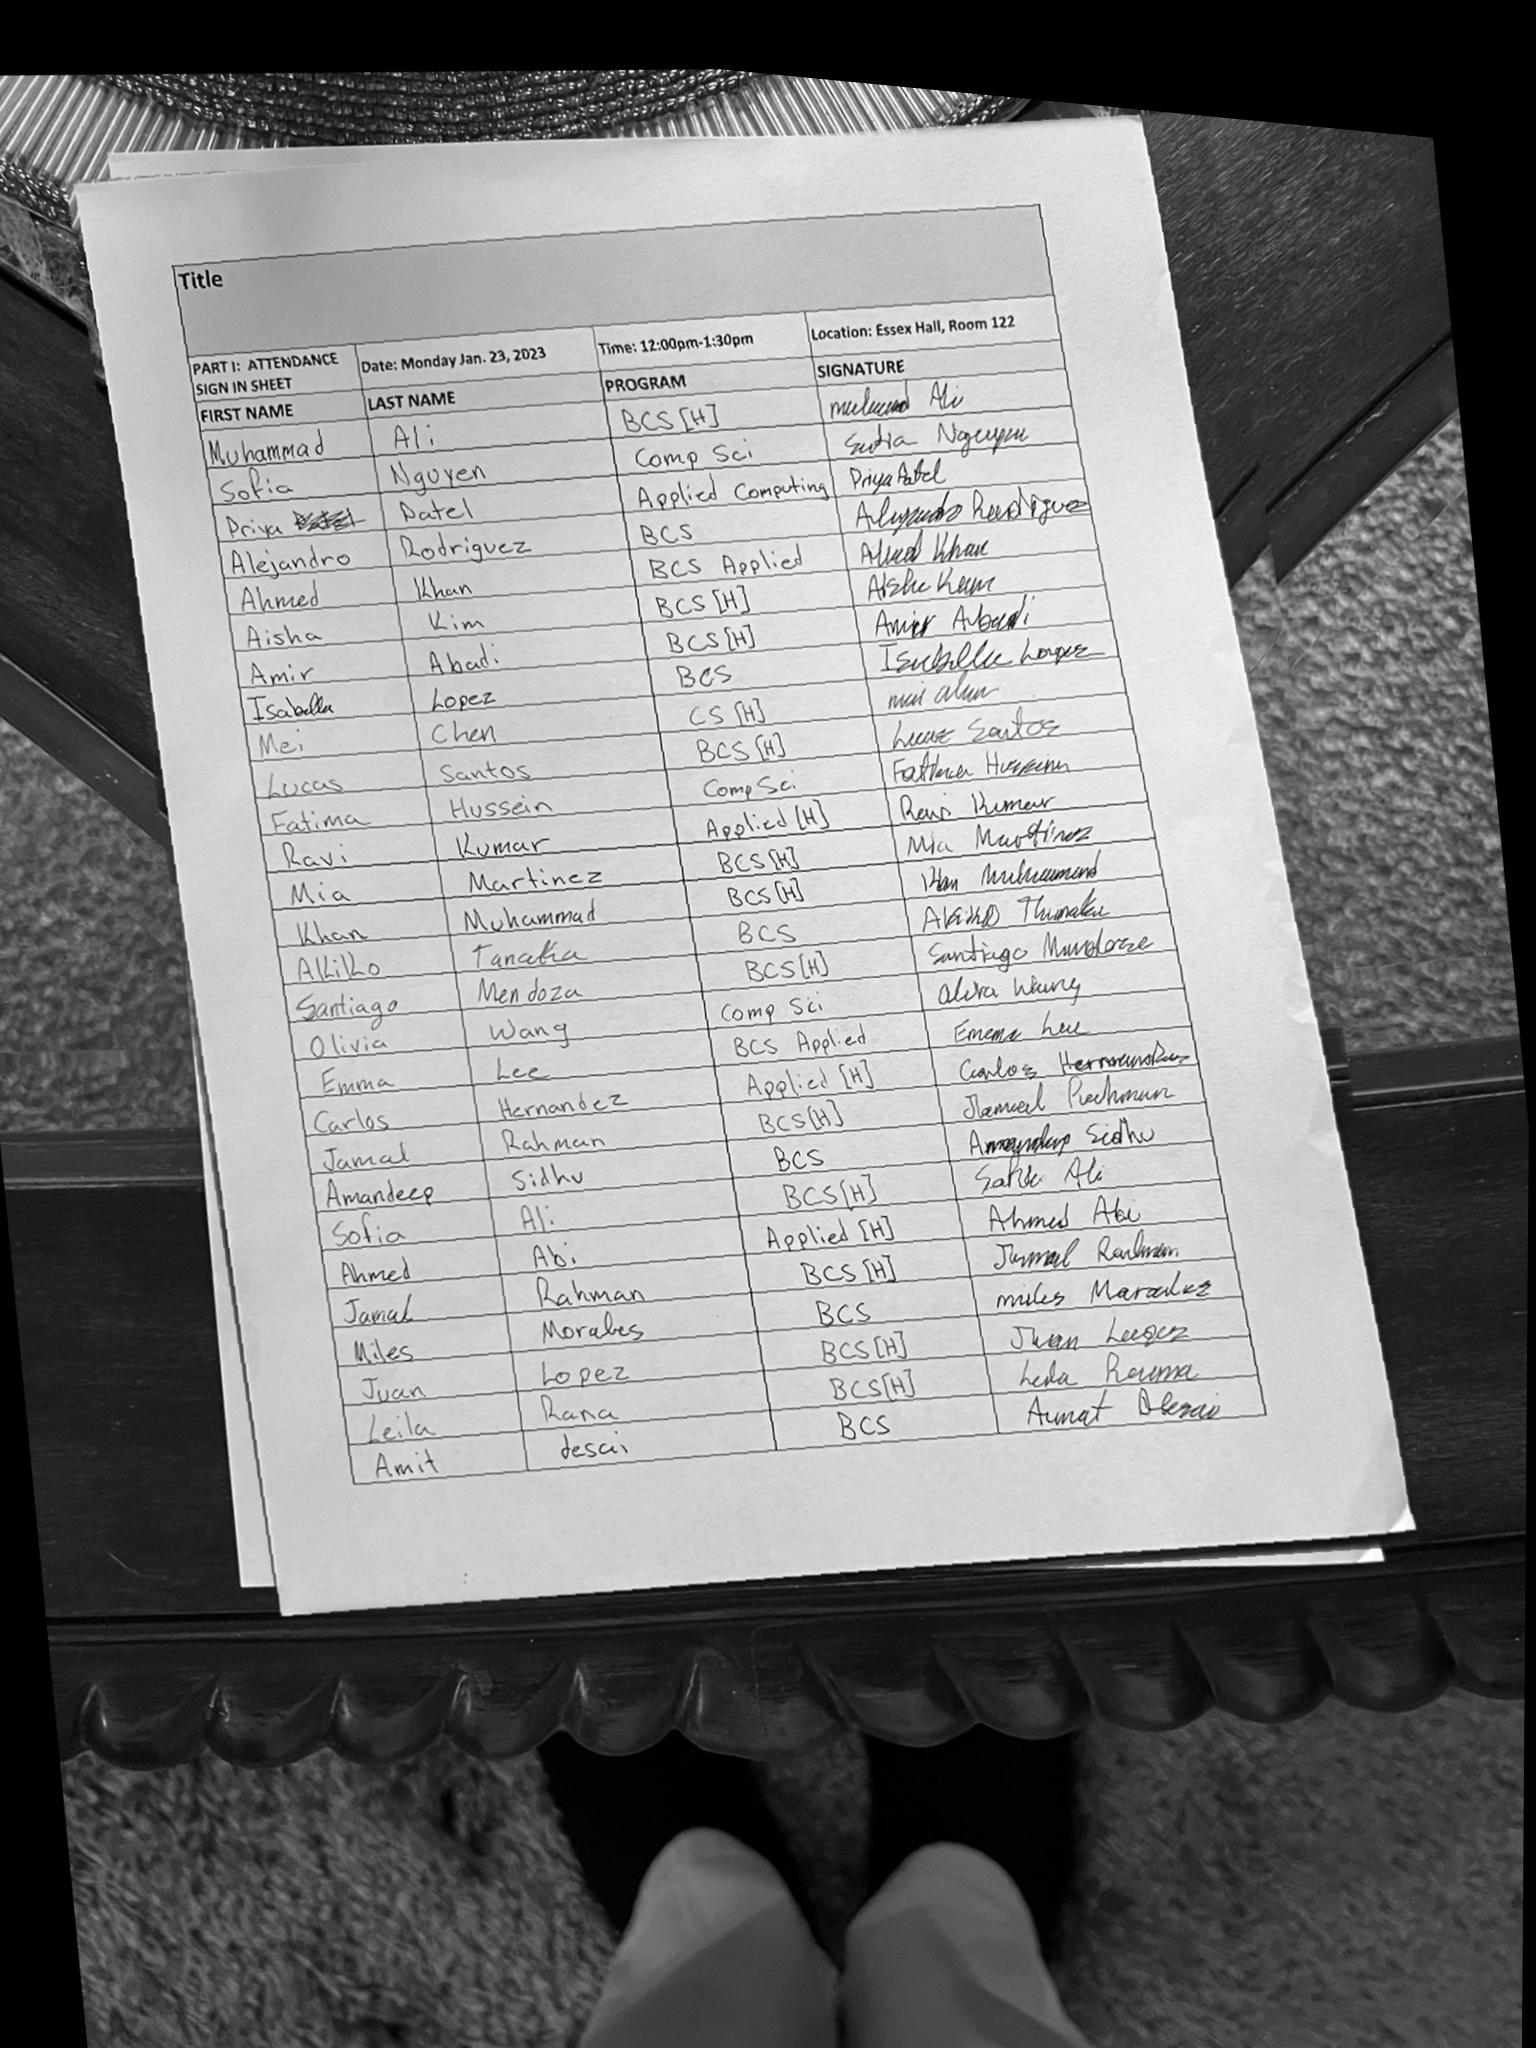 Title
PART I: ATTENDANCE SIGN IN SHEET Date: Monday Jan. 23, 2023 Time: 12:00pm-1:30pm Location: Essex Hall, Room 122
FIRST NAME LAST NAME PROGRAM SIGNATURE
Muhammad Ali BCS [H] Ali
Sofia Nguyen Comp Sci Sofia Nguyen
Priya Patel Applied Computing Priya Patel
Alejandro Rodriguez BCS Rodriguez
Ahmed Khan BCS Applied Ahmed Khan
Aisha Kim BCS [H]
Amir Abadi BCS [H] Amir Abadi
Isabella Lopez BCS Isabella Lopez
Mei Chen CS [H]
Lucas Santos BCS [H] Lucas Santos
Fatima Hussein Comp Sci Fatima Hussein
Ravi Kumar Applied [H] Ravi Kumar
Mia Martinez BCS [H] Mia Martinez
Khan Muhammad BCS [H] Khan Muhammad
Akiko Tanaka BCS
Santiago Mendoza BCS [H] Santiago
Olivia Wang Comp Sci Wang
Emma Lee BCS Applied Emma Lee
Carlos Hernandez Applied [H] Carlos
Jamal Rahman BCS [H] Jamal Rahman
Amandeep Sidhu BCS Amandeep Sidhu
Sofia Ali BCS [H] Ali
Ahmed Abi Applied [H] Ahmed Abi
Jamal Rahman BCS [H] Jamal Rahman
Miles Morales BCS miles
Juan Lopez BCS [H] Juan
Leila Rana BCS [H]
Amit desai BCS